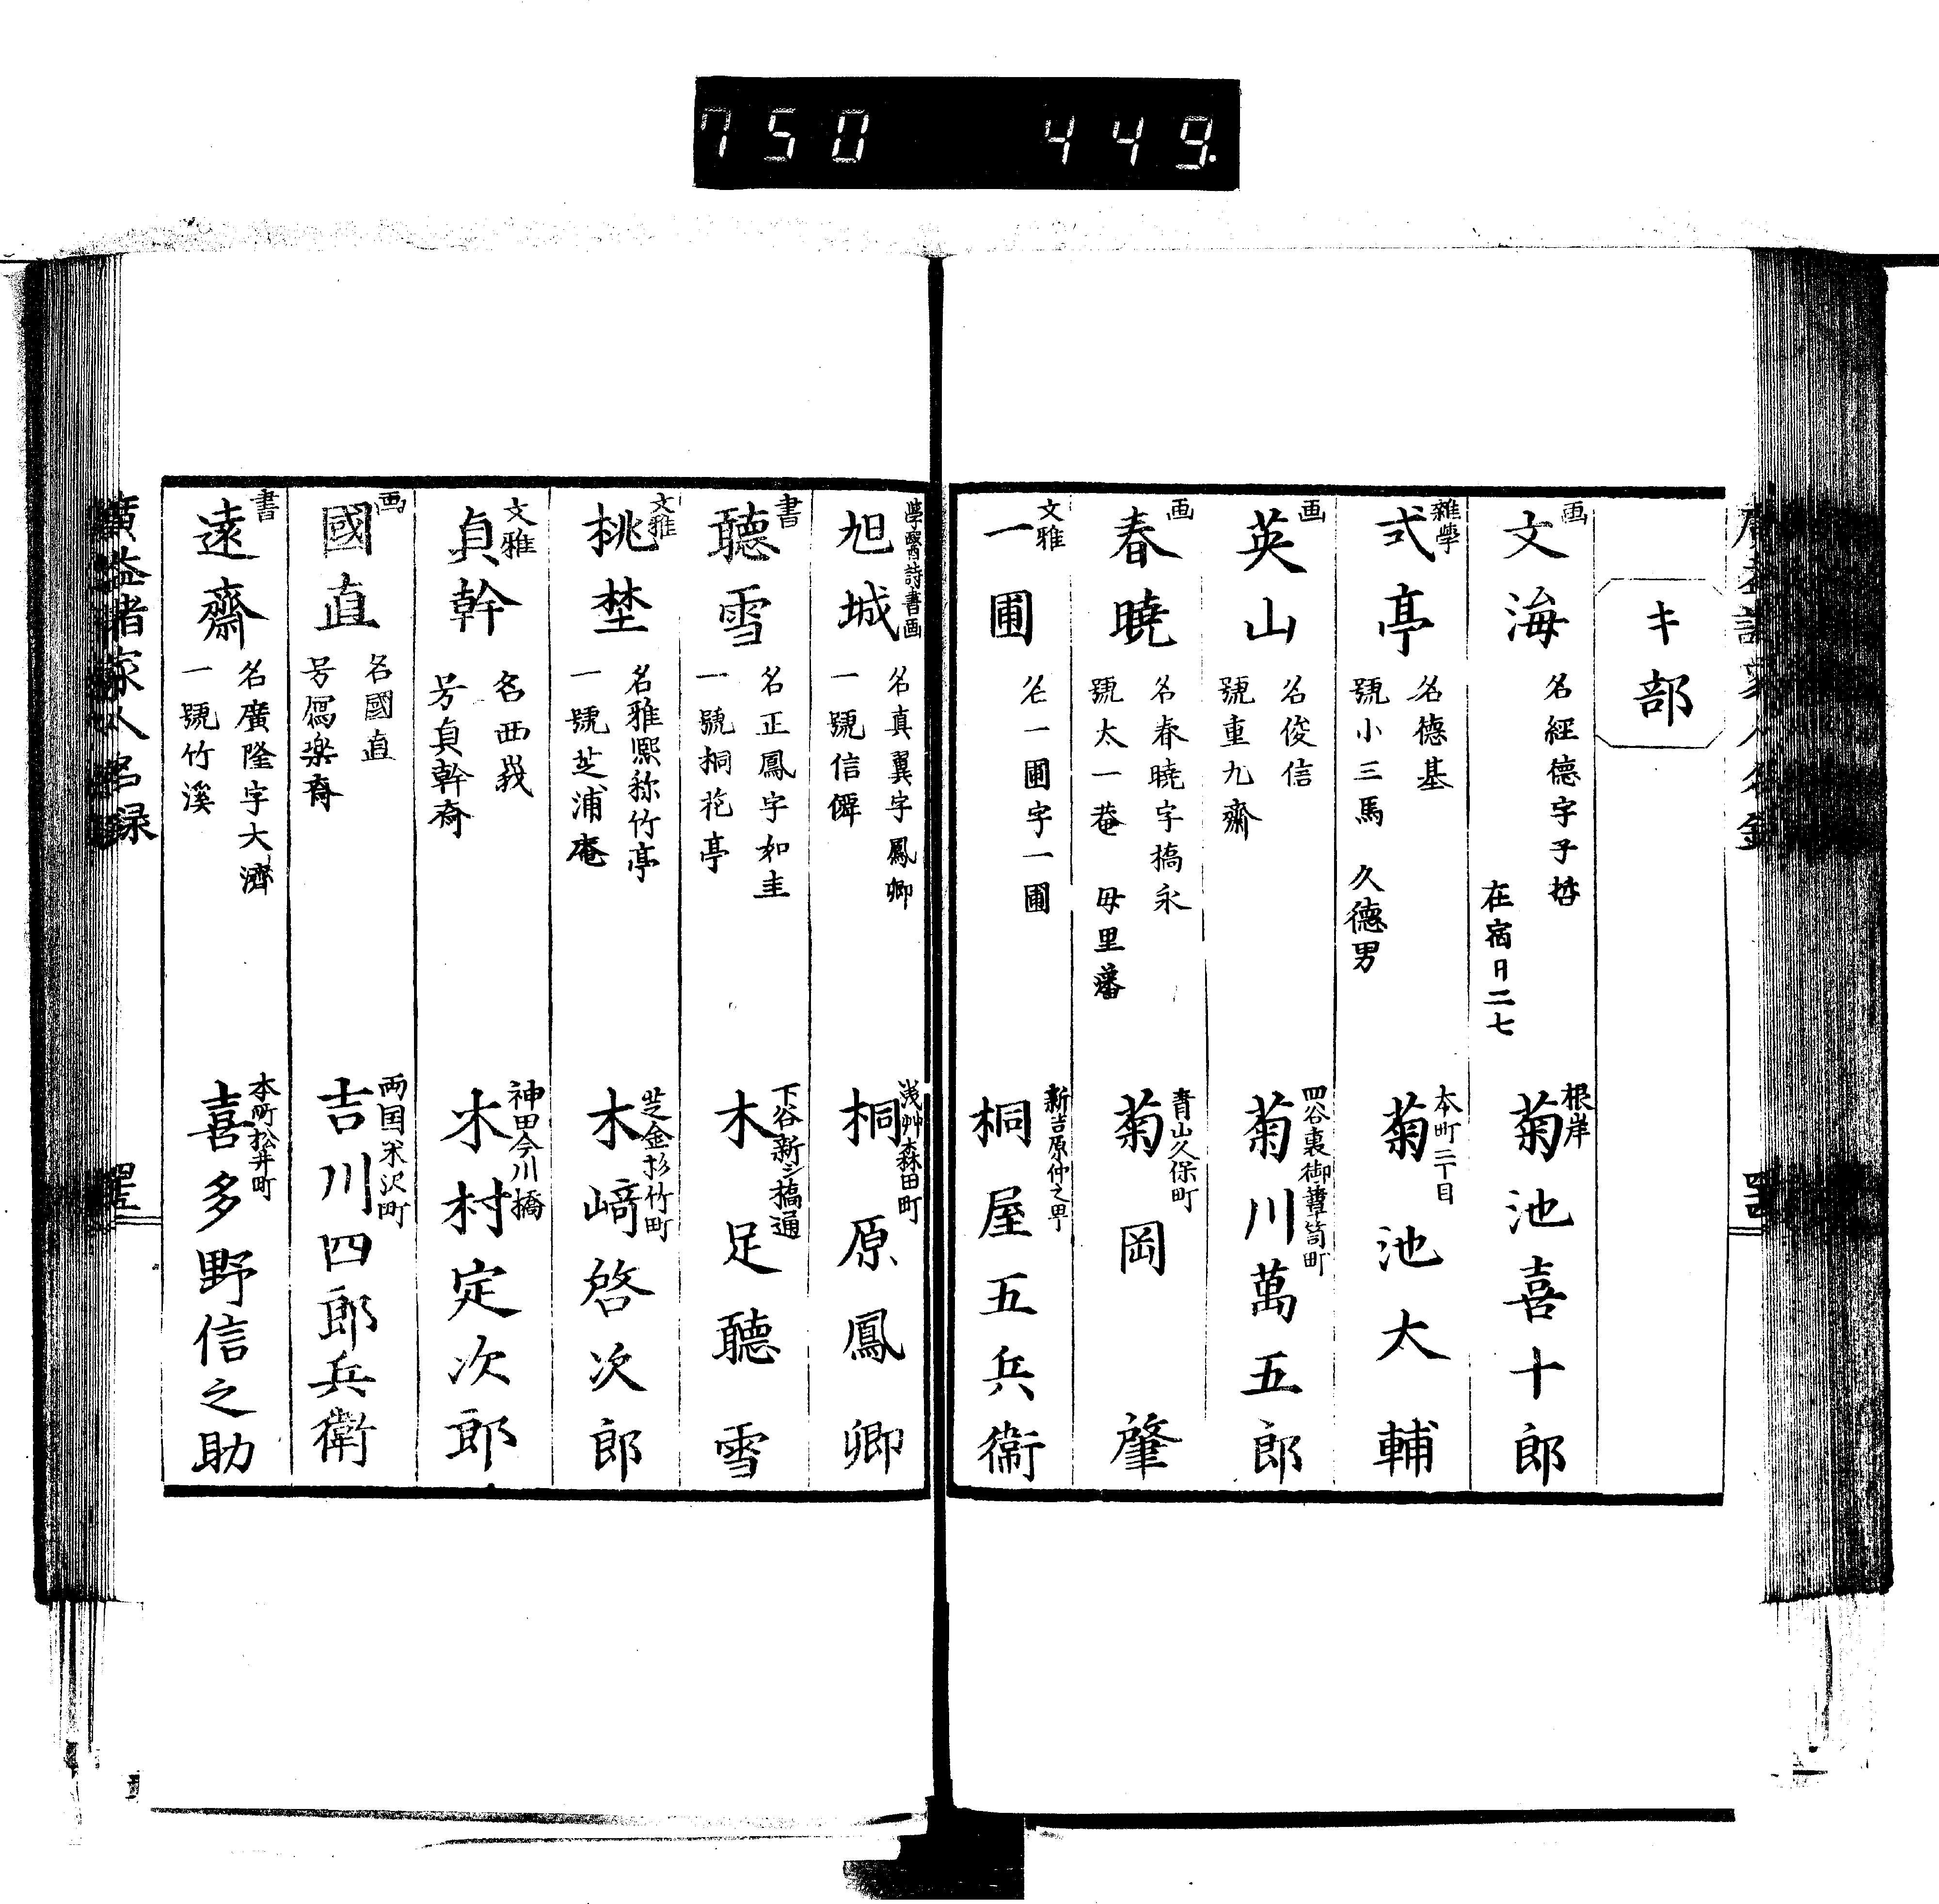 750 449.
キ部
画
文海
名經德字子哲
在宿日二七
根岸
菊池喜十郎
雜學
式亭
名德基
號小三馬 久德男
本町二丁目
菊池太輔
画
英山
名俊信
號重九齋
四谷裏御箪笥町
菊川萬五郎
画
春曉
名春曉字橋永
號太一菴 母里藩
青山久保町
菊岡肇
文雅
一圃
名一圃字一圃
新吉原仲之甼
桐屋五兵衞
學醫詩書画
旭城
名真翼字鳳卿
一號信僻
浅艸森田町
桐原鳳卿
書
聽雪
名正鳳字如圭
一號桐花亭
下谷新シ橋通
木足聽雪
文雅
桃埜
名雅熈称竹亭
一號芝浦庵
芝金杉竹町
木﨑啓次郎
文雅
貞幹
名西峩
号貞幹斎
神田今川橋
木村定次郎
画
國直
名國直
号寫楽斎
両国米沢町
吉川四郎兵衛
書
遠齋
名廣隆字大濟
一號竹溪
本町松井町
喜多野信之助
廣益諸家人名録